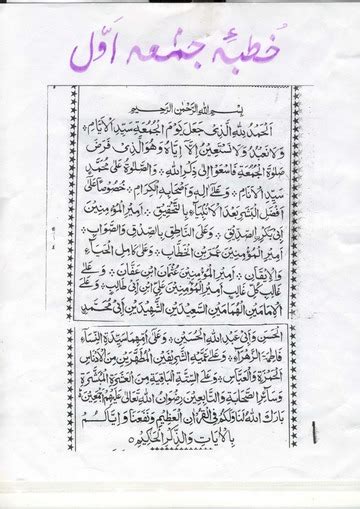 خُطبۂ جمعہ اَوّل
بِسْمِ اللهِ الرَّحْمٰنِ الرَّحِيْمِ
اَلْحَمْدُ لِلّٰهِ الَّذِيْ جَعَلَ يَوْمَ الْجُمُعَةِ سَيِّدَ الْاَيَّامِ ٭
وَلَا نَعْبُدُ وَلَا نَسْتَعِيْنُ اِلَّا اِيَّاهُ وَهُوَ الَّذِيْ فَرَضَ
صَلٰوةَ الْجُمُعَةِ فَاسْعَوْا اِلٰى ذِكْرِ اللهِ ٭ وَالصَّلٰوةُ عَلٰى مُحَمَّدٍ
سَيِّدِ الْاَنَامِ ٭ وَعَلٰى اٰلِهٖ وَاَصْحَابِهِ الْكِرَامِ ٭ خُصُوْصًا عَلٰى
اَفْضَلِ الْبَشَرِ بَعْدَ الْاَنْبِيَاءِ بِالتَّحْقِيْقِ ٭ اَمِيْرِ الْمُؤْمِنِيْنَ
اَبِيْ بَكْرِنِ الصِّدِّيْقِ ٭ وَعَلَى النَّاطِقِ بِالصِّدْقِ وَالصَّوَابِ ٭
اَمِيْرِ الْمُؤْمِنِيْنَ عُمَرَ بْنِ الْخَطَّابِ ٭ وَعَلٰى كَامِلِ الْحَيَاءِ
وَالْاِيْقَانِ ٭ اَمِيْرِ الْمُؤْمِنِيْنَ عُثْمَانَ ابْنِ عَفَّانَ ٭ وَعَلٰى
غَالِبِ كُلِّ غَالِبٍ اَمِيْرِ الْمُؤْمِنِيْنَ عَلِيِّ ابْنِ اَبِيْ طَالِبٍ ٭ وَعَلَى
الْاِمَامَيْنِ الْهُمَامَيْنِ السَّعِيْدَيْنِ الشَّهِيْدَيْنِ اَبِيْ مُحَمَّدِ
الْحَسَنِ وَاَبِيْ عَبْدِ اللهِ الْحُسَيْنِ ٭ وَعَلٰى اُمِّهِمَا سَيِّدَةِ النِّسَاءِ
فَاطِمَةَ الزَّهْرَاءِ ٭ وَعَلٰى عَمَّيْهِ الشَّرِيْفَيْنِ الْمُطَهَّرَيْنِ مِنَ الْاَدْنَاسِ
الْحَمْزَةِ وَالْعَبَّاسِ ٭ وَعَلَى السِّتَّةِ الْبَاقِيَةِ مِنَ الْعَشَرَةِ الْمُبَشَّرَةِ
وَسَائِرِ الصَّحَابَةِ وَالتَّابِعِيْنَ رِضْوَانُ اللهِ تَعَالٰى عَلَيْهِمْ اَجْمَعِيْنَ ٭
بَارَكَ اللهُ لَنَا وَلَكُمْ فِي الْقُرْاٰنِ الْعَظِيْمِ وَنَفَعَنَا وَاِيَّاكُمْ
بِالْاٰيَاتِ وَالذِّكْرِ الْحَكِيْمِ ٥